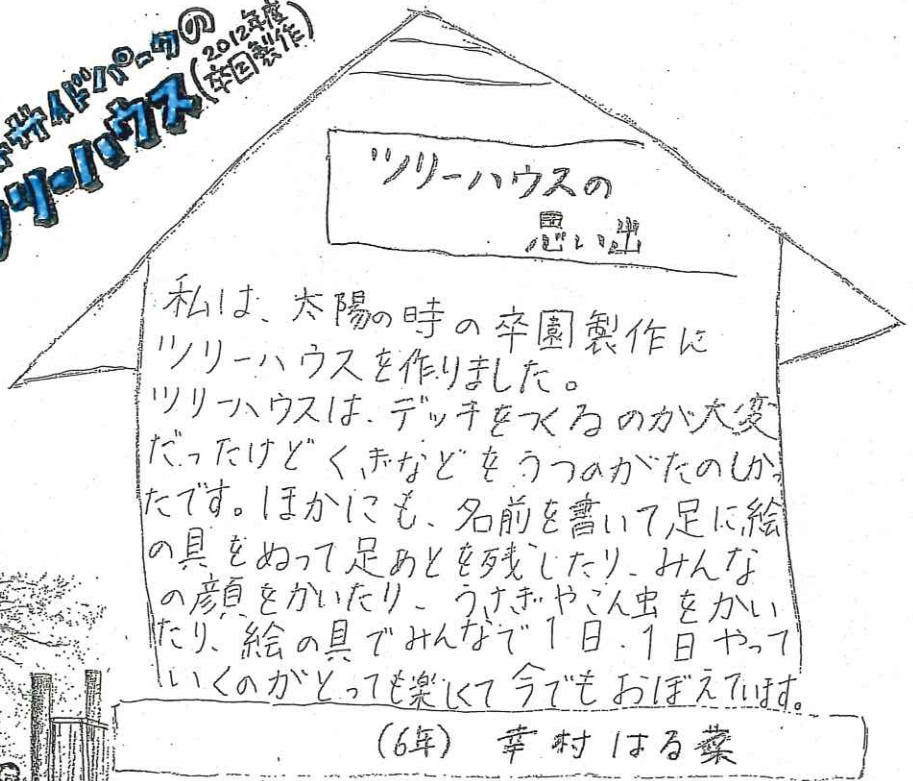 トサイドパークの
ツリーハウス(2012年度卒園製作)
ツリーハウスの
思い出
私は、太陽の時の卒園製作に
ツリーハウスを作りました。
ツリーハウスは、デッキをつくるのが大変
だったけどくぎなどをうつのがたのしかっ
たです。ほかにも、名前を書いて足に絵
の具をぬって足あとを残したり、みんな
の顔をかいたり、うさぎやこん虫をかい
たり、絵の具でみんなで1日.1日やって
いくのがとっても楽しくて今でもおぼえています。
(6年) 幸村はる菜